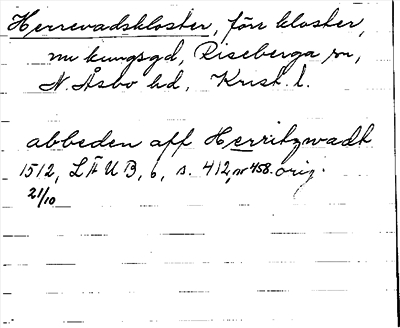 Herrevadskloster, förr kloster,
nu kungsgd, Riseberga sn,
N. Åsbo hd, Krist. l.
abbeden aff Herritzwadh
1512, LÄUB, 6, s. 412, nr 458. orig.
21/10